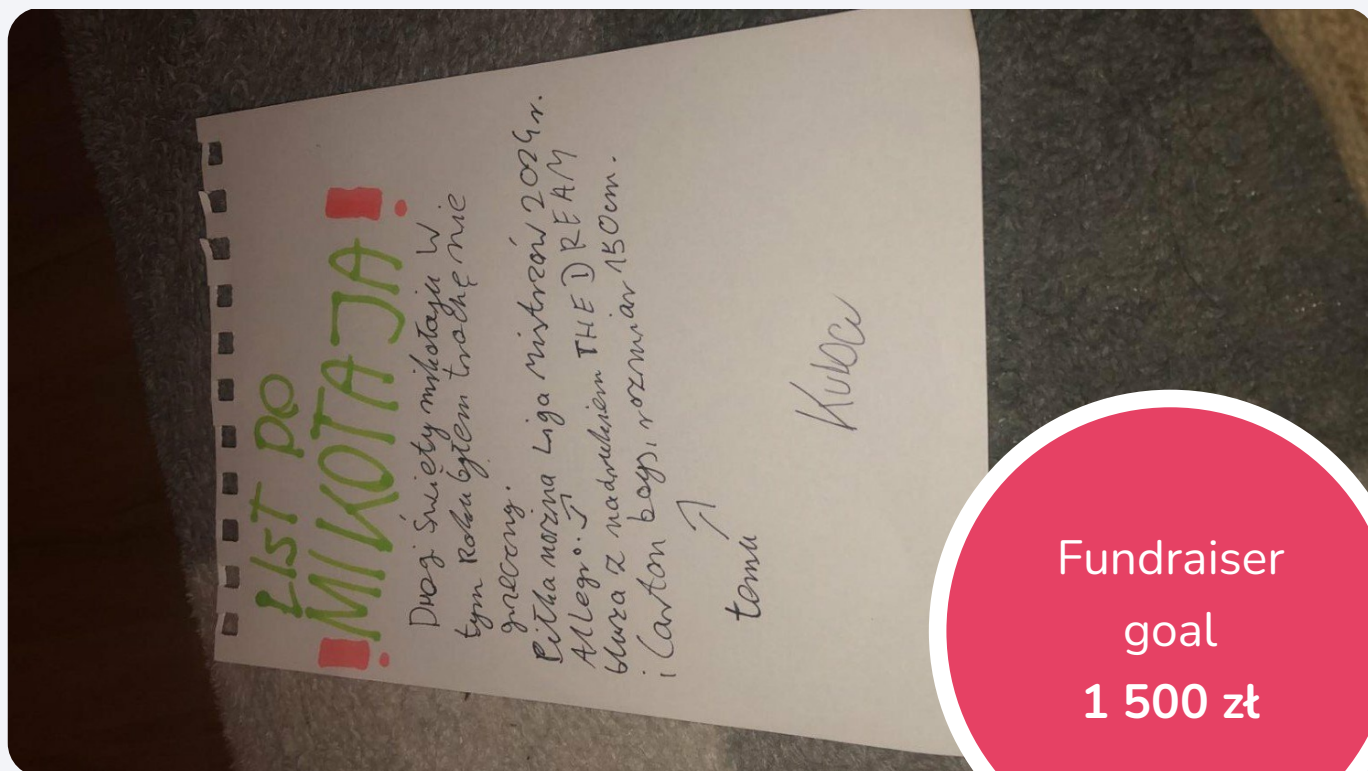 LIST DO
!MIKOTAJA!
Drogi Święty mikołaju W
tym Roku byłem trochę nie
grzeczny.
Piłka nożna Liga mistrzów 2024r.
Allegro.
bluza z nadrukiem THE DREAM
i Carton boys, rozmiar 150cm.
temu
Kuba
Fundraiser
goal
1 500 zł